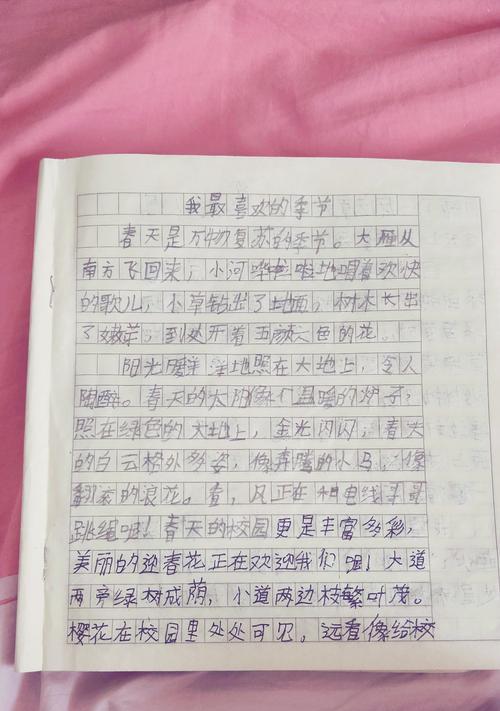 我最喜欢的季节
春天是万物复苏的季节。大雁从
南方飞回来,小河哗啦啦地唱着欢快
的歌儿,小草钻出了地面,树木长出
了嫩芽,到处开着五颜六色的花。
阳光暖洋洋地照在大地上,令人
陶醉。春天的太阳像个温暖的炉子,
照在绿色的大地上,金光闪闪,春天
的白云格外多姿,像奔腾的小马,像
翻滚的浪花。看,风正在和电线哥哥
跳绳呢!春天的校园更是丰富多彩,
美丽的迎春花正在欢迎我们呢!大道
两旁绿树成荫,小道两边枝繁叶茂。
樱花在校园里处处可见,远看像给校